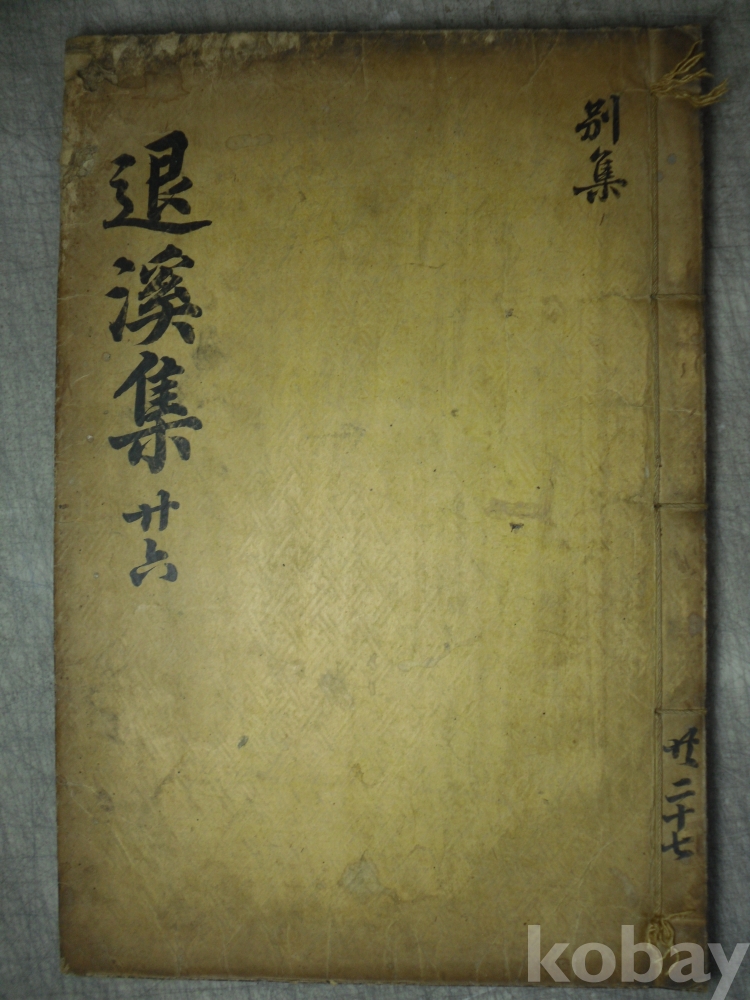 別集
共二十七
退溪集 廿六
kobay